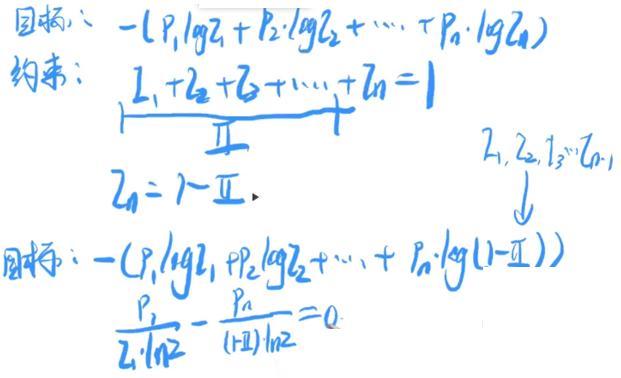 目标: -(P₁logZ₁ + P₂·logZ₂ + ⋯ + Pₙ·logZₙ)
约束: Z₁+Z₂+Z₃+⋯+Zₙ=1
II
Z₁, Z₂, Z₃⋯Zₙ₋₁
Zₙ=1-II
目标: -(P₁logZ₁+P₂logZ₂+⋯+Pₙ·log(1-II))
P₁/(Z₁·ln2) - Pₙ/((1-II)·ln2) =0